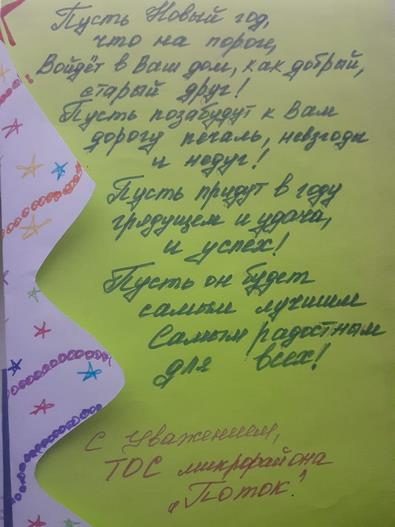 Пусть Новый год,
что на пороге,
Войдёт в Ваш дом, как добрый,
старый друг!
Пусть позабудут к Вам
дорогу печаль, невзгоды
и недуг!
Пусть придут в году
грядущем и удача,
и успех!
Пусть он будет
самым лучшим
Самым радостным
для всех!
С Уважением,
ТОС микрорайона
„Поток."